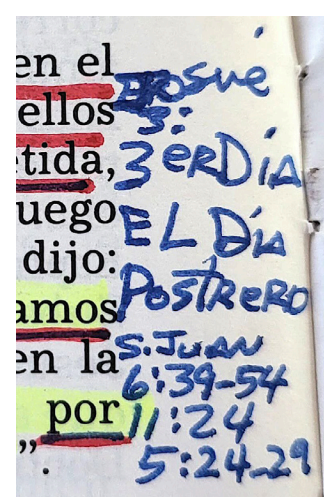 en el
ellos
tida,
uego
dijo:
amos
en la
por
”.
Josué
3:
3erDía
EL Día
PostReRO
S. JUAN
6:39-54
11:24
5:24-29